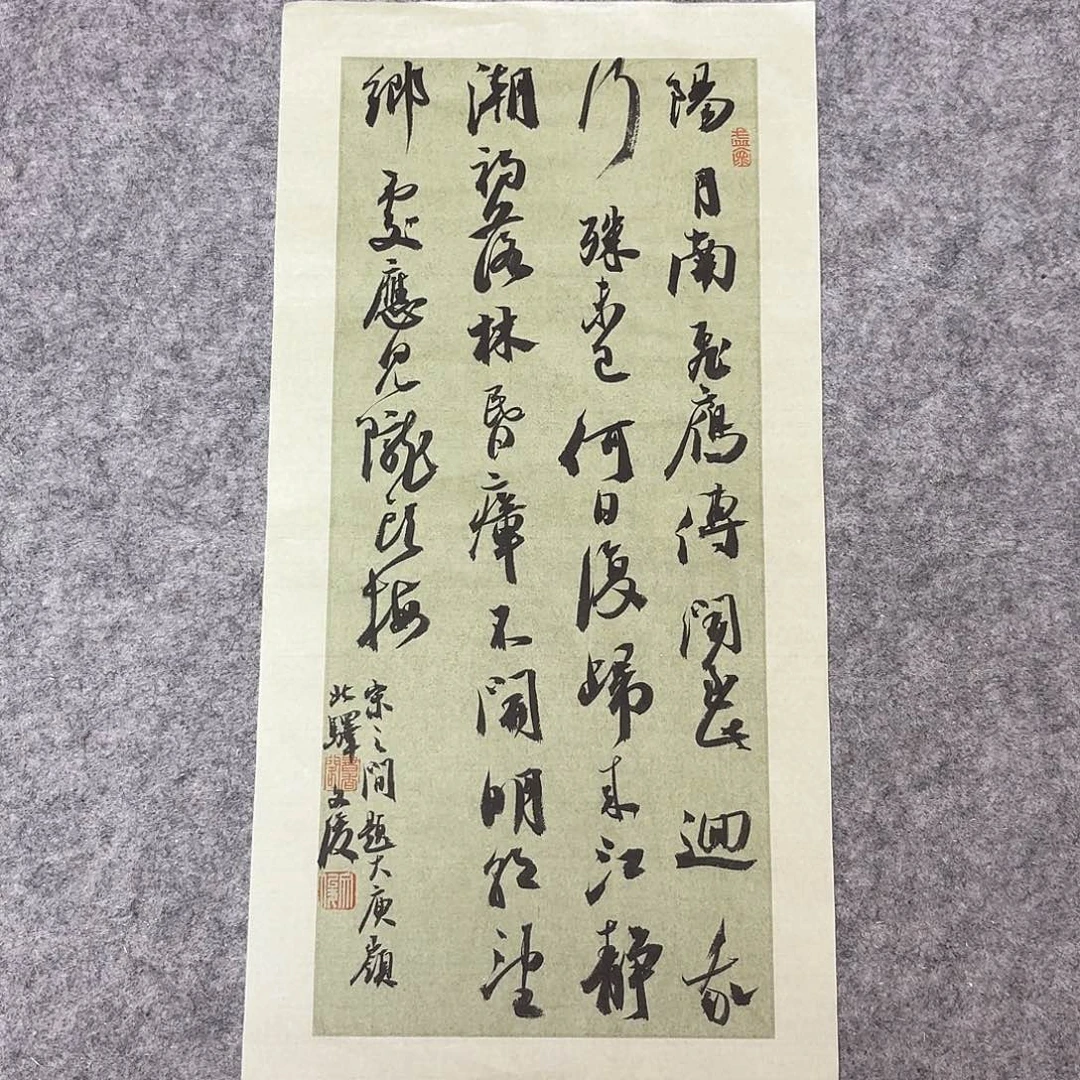 陽月南飛鴈傳聞至此迴我
行殊未已何日復歸來江靜
潮初落林昬瘴不開明朝望
鄉處應見隴頭梅
宋之問題大庾嶺
北驛 文